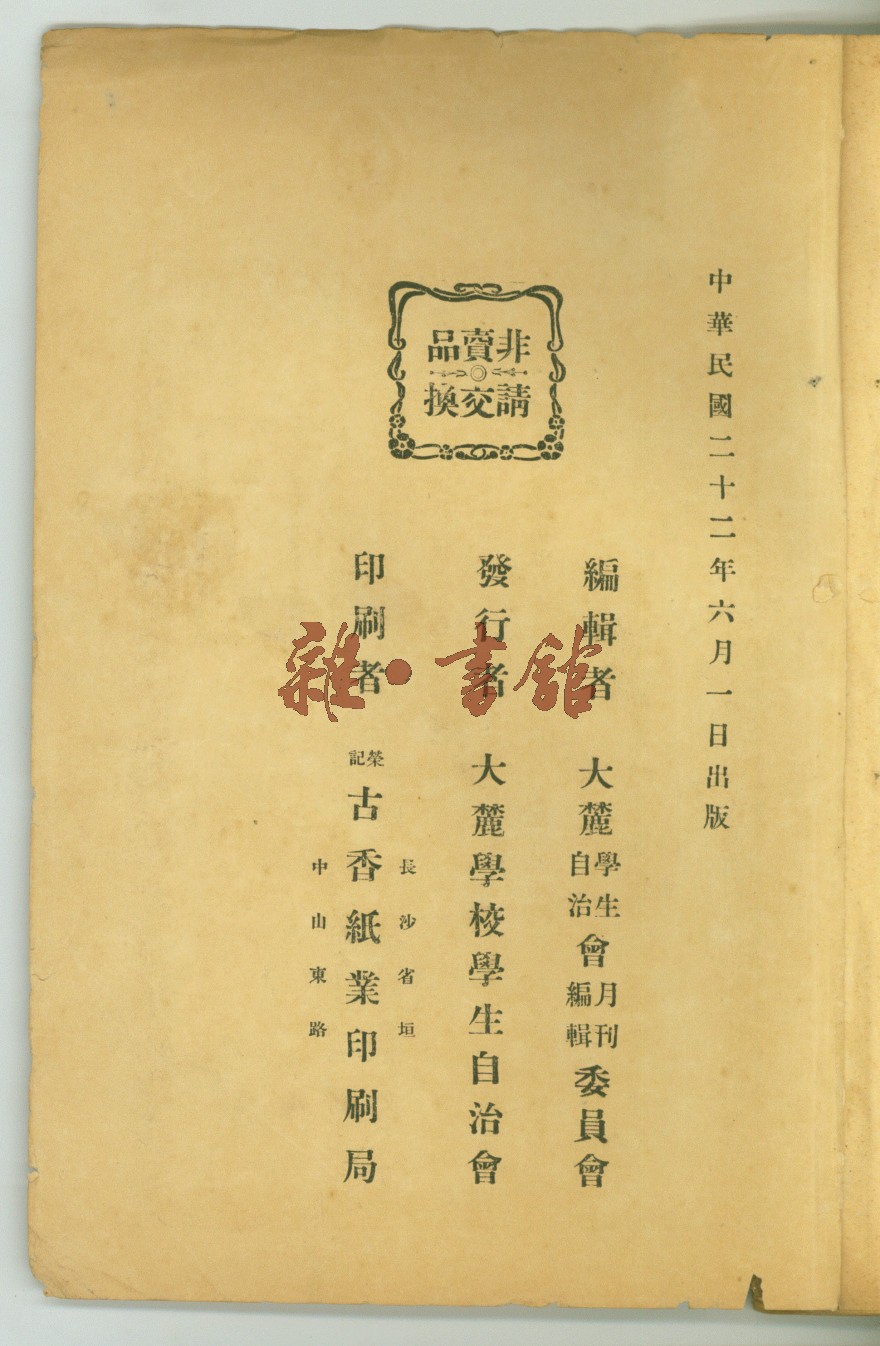 中華民國二十二年六月一日出版
非賣品
請交換
編輯者 大麓學生自治會月刊編輯委員會
發行者 大麓學校學生自治會
印刷者 榮記古香紙業印刷局
長沙省垣
中山東路
雜·書館